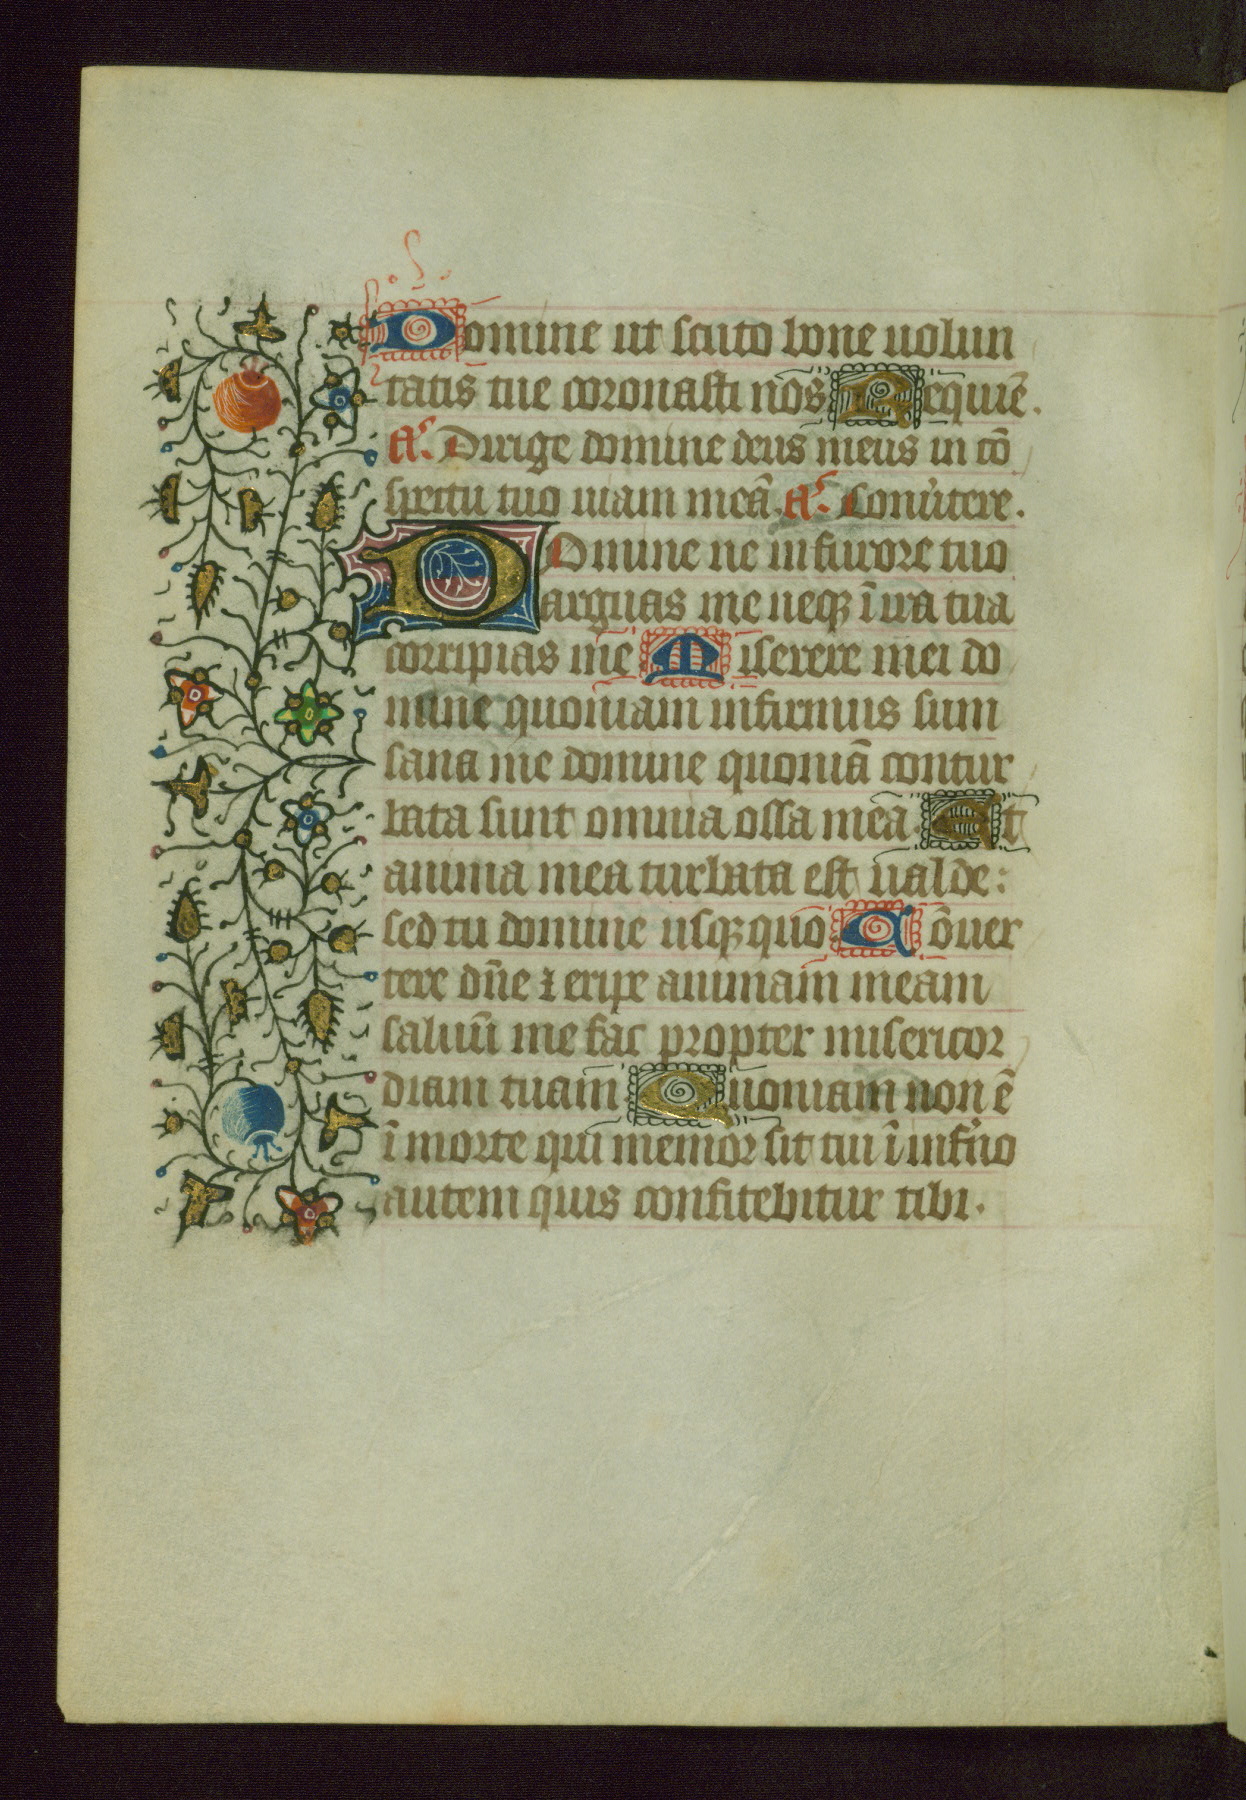 Domine ut scuto bone uolun
tatis tue coronasti nos Requiē.
Aͥ. Dirige domine deus meus in cō
spectu tuo uiam meā. Aͥ. Conu̓tere.
Domine ne in furore tuo
arguas me neqꝫ ī ira tua
corripias me Miserere mei do
mine quoniam infirmus sum
sana me domine quoniā contur
bata sunt omnia ossa mea Et
anima mea turbata est ualde:
sed tu domine usqꝫquo Cōuer
tere dn̄e ⁊ eripe animam meam
saluū me fac propter misericor
diam tuam Quoniam non ē
ī morte qui memor sit tui ī inf̓no
autem quis confitebitur tibi.